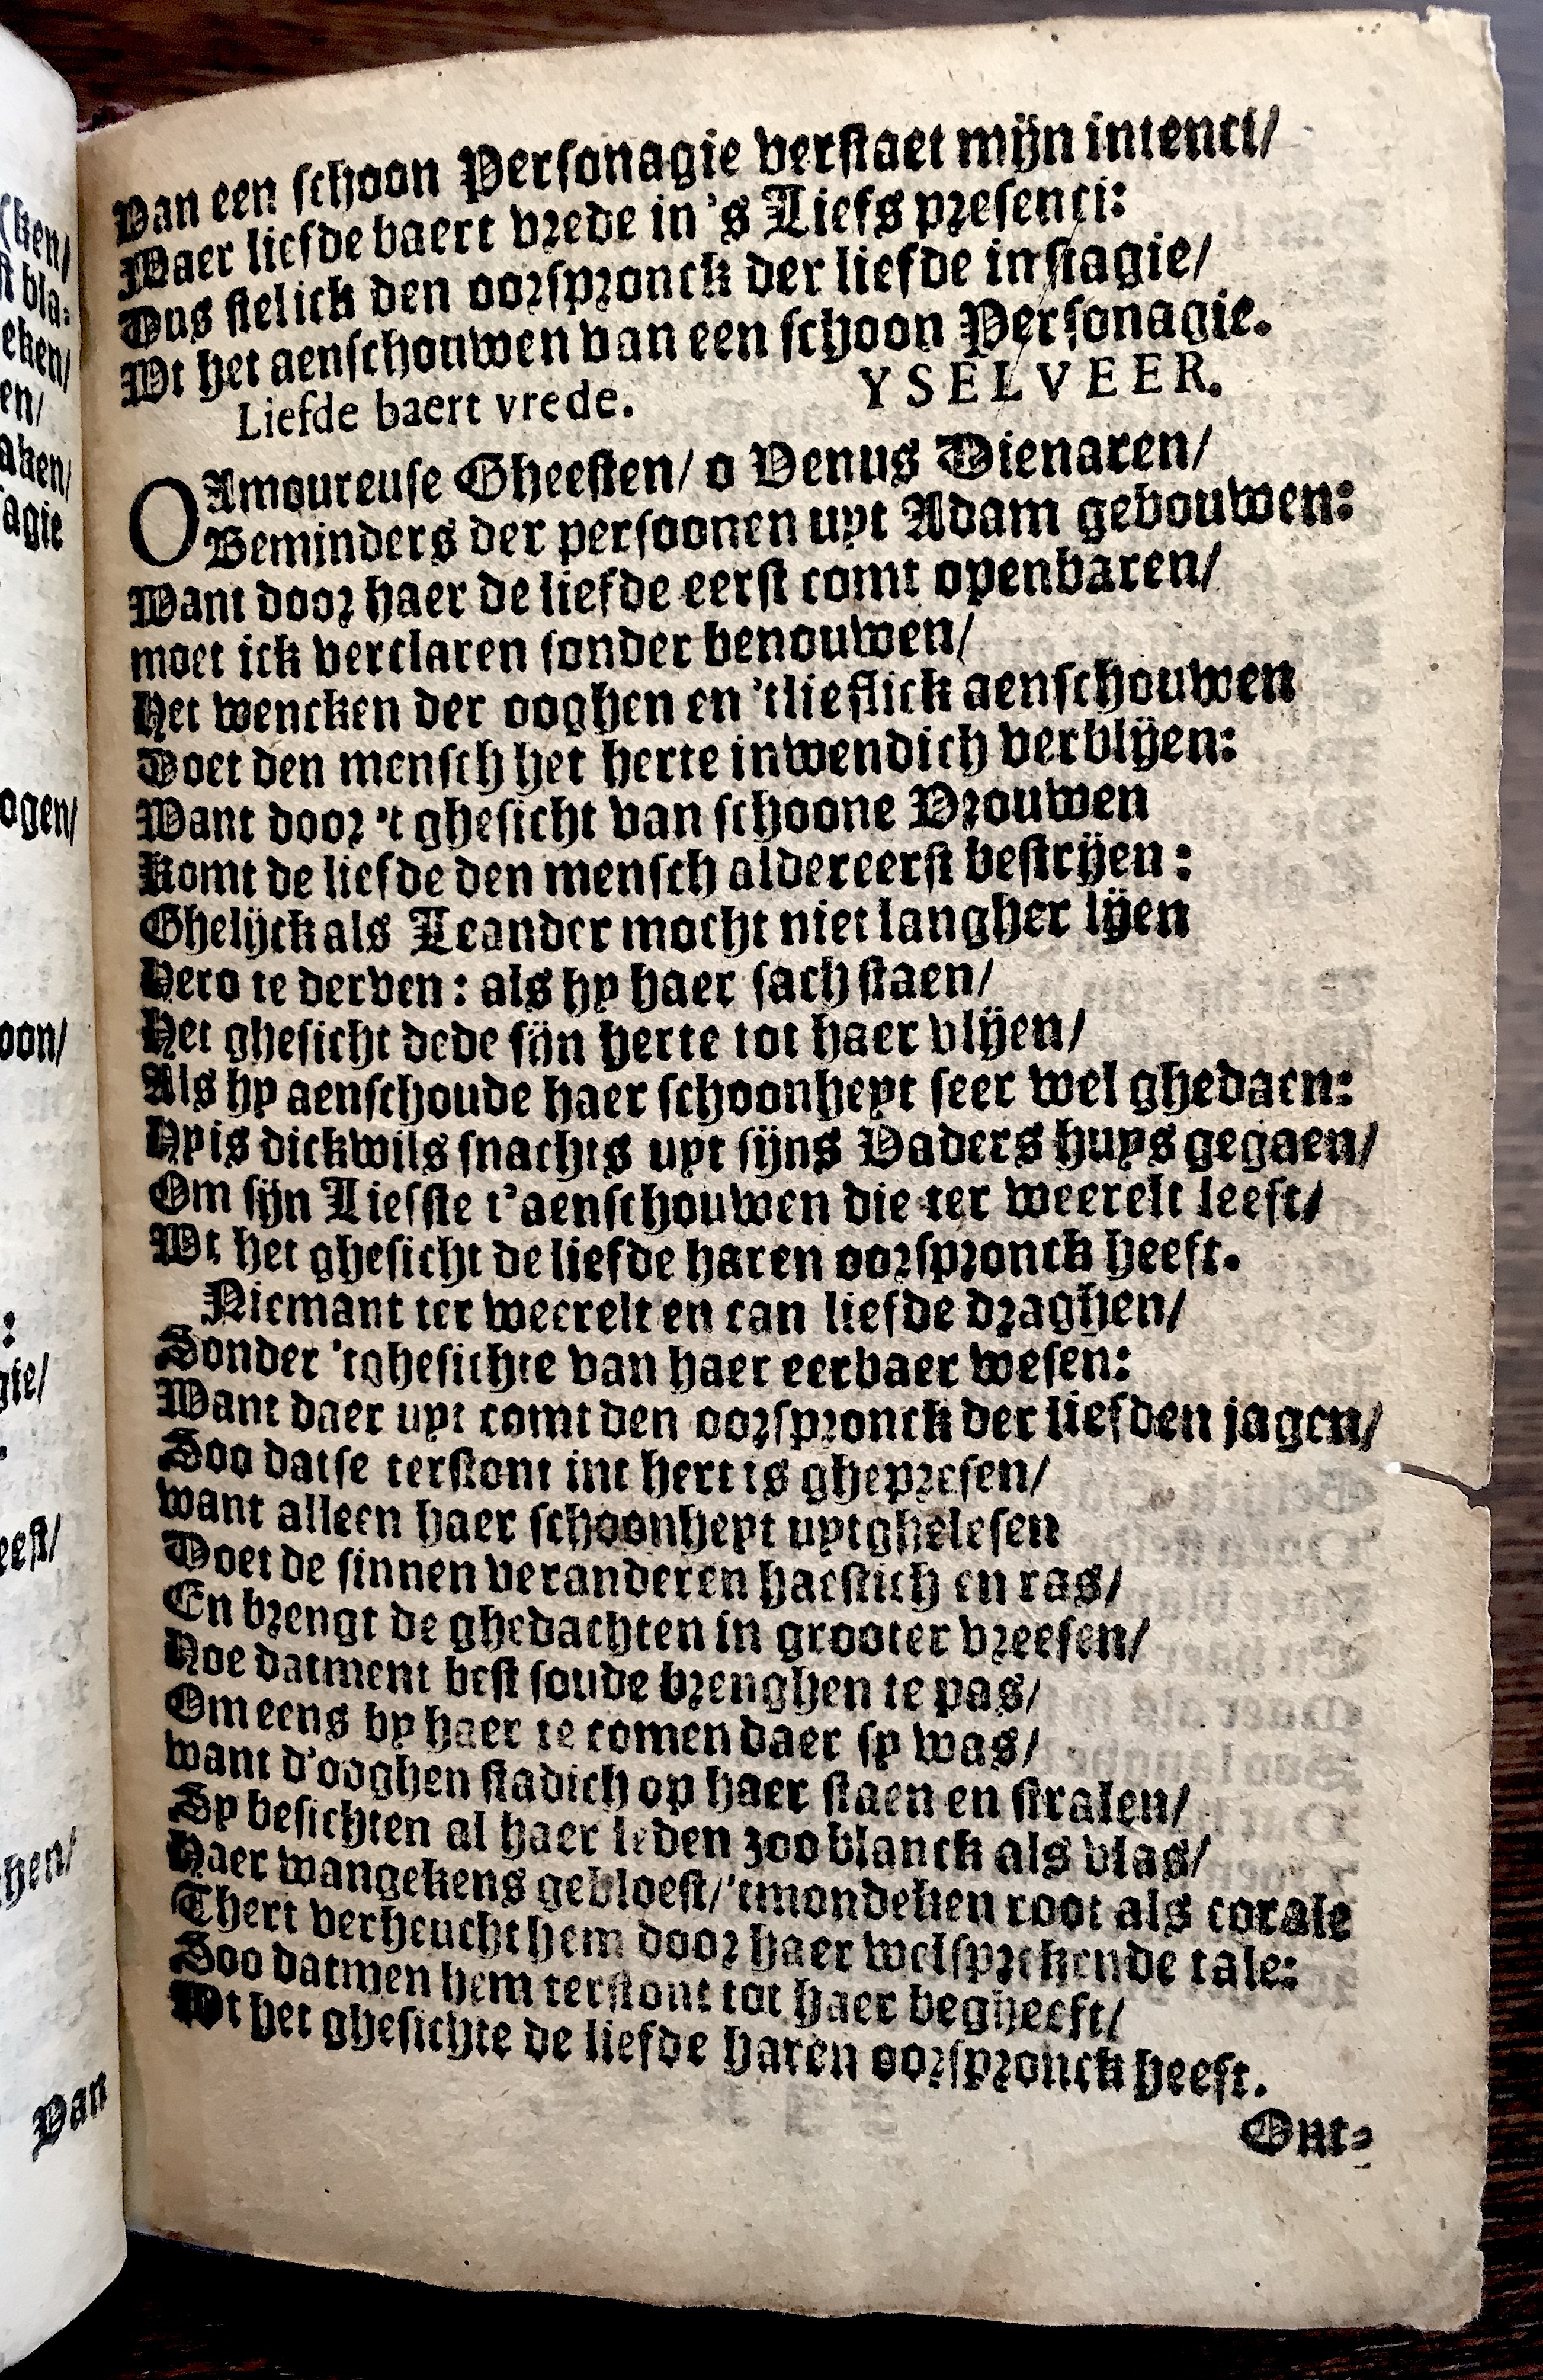 Van een schoon Personagie verstaet mijn intenci/
Waer liefde baert vrede in 's Liefs presenci:
Dus stelick den oorspronck der liefde in stagie/
Wt het aenschouwen van een schoon Personagie.
Liefde baert vrede. YSELVEER.
O Amoureuse Gheesten/ o Venus Dienaren/
Beminders der persoonen uyt Adam gebouwen:
Want door haer de liefde eerst comt openbaren/
moet ick verclaren sonder benouwen/
Het wencken der ooghen en 'tlieflick aenschouwen
Doet den mensch het herte inwendich verblijen:
Want door 't ghesicht van schoone Vrouwen
Komt de liefde den mensch aldereerst bestrijen:
Ghelijck als Leander mocht niet langher lijen
Hero te derven: als hy haer sach staen/
Het ghesicht dede sijn herte tot haer vlijen/
Als hy aenschoude haer schoonheyt seer wel ghedaen:
Hy is dickwils snachts uyt sijns Vaders huys gegaen/
Om sijn Liefste t'aenschouwen die ter weerelt leeft/
Wt het ghesicht de liefde haren oorspronck heeft.
Niemant ter weerelt en can liefde draghen/
Sonder 'tghesichte van haer eerbaer wesen:
Want daer uyt comt den oorspronck der liefden jagen/
Soo datse terstont int hert is ghepresen/
want alleen haer schoonheyt uytghelesen
Doet de sinnen veranderen haestich en ras/
En brengt de ghedachten in grooter vreesen/
Hoe datment best soude brenghen te pas/
Om eens by haer te comen daer sy was/
want d'ooghen stadich op haer staen en stralen/
Sy besichten al haer leden zoo blanck als vlas/
Haer wangekens gebloest/ 'tmondeken root als corale
Thert verheucht hem door haer welsprekende tale:
Soo datmen hem terstont tot haer begheeft/
Wt het ghesichte de liefde haren oorspronck heeft.
Ont-
ken/
st bla-
eken/
en/
aken/
agie
ogen/
oon/
:
gie/
eest/
hen/
Van